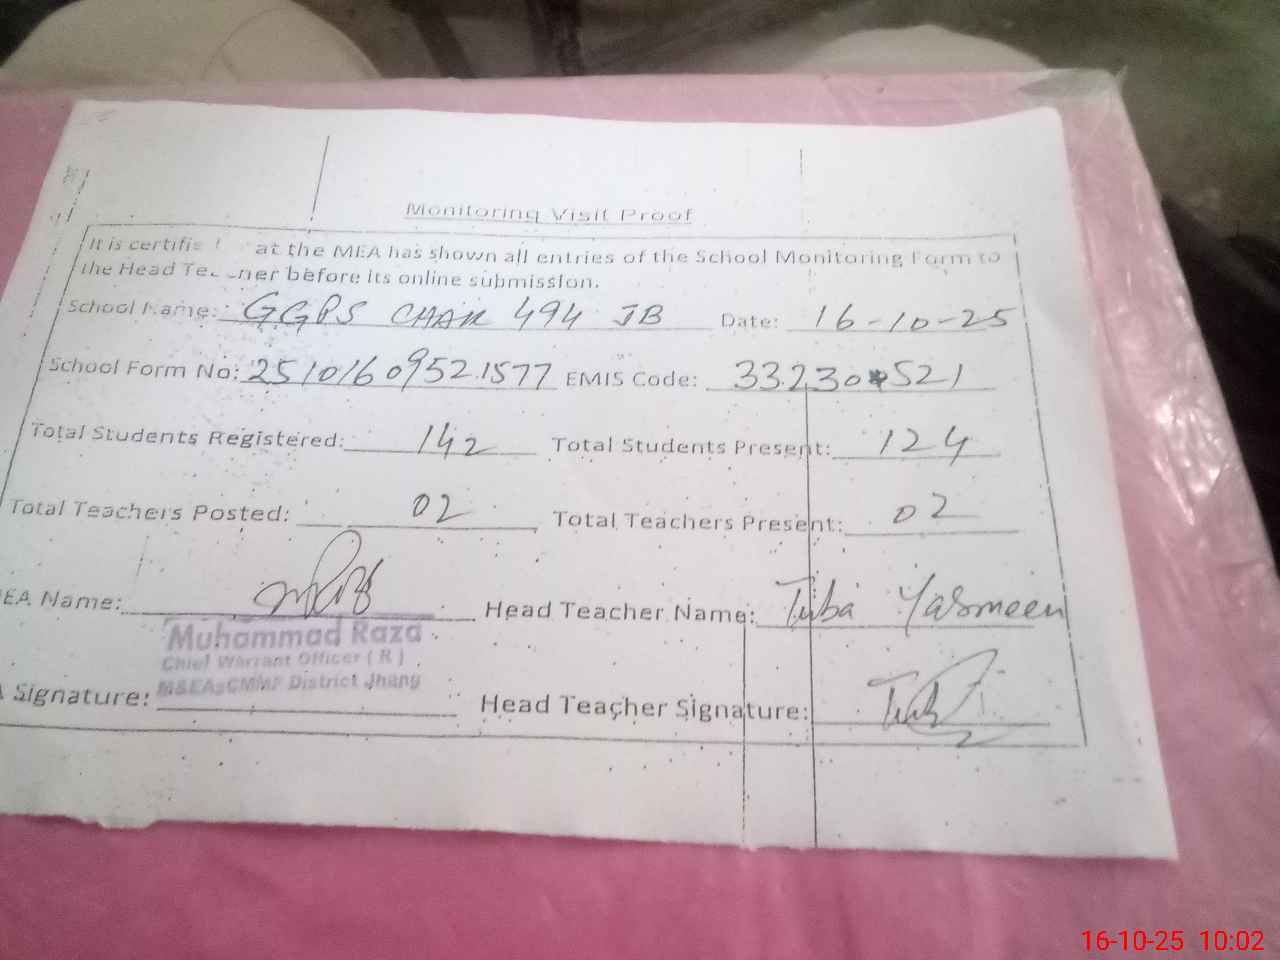 Monitoring Visit Proof
It is certifie at the MEA has shown all entries of the School Monitoring Form to
the Head Te ner before its online submission.
School Name: GGPS CHAK 494 JB Date: 16-10-25
School Form No: 25101609521577 EMIS Code: 33230521
Total Students Registered: 142 Total Students Present: 124
Total Teachers Posted: 02 Total Teachers Present: 02
EA Name: Head Teacher Name: Tuba Yasmeen
Muhammad Raza
Chief Warrant Officer ( R )
M&EAsCMMF District Jhang
A Signature: Head Teacher Signature:
16-10-25 10:02